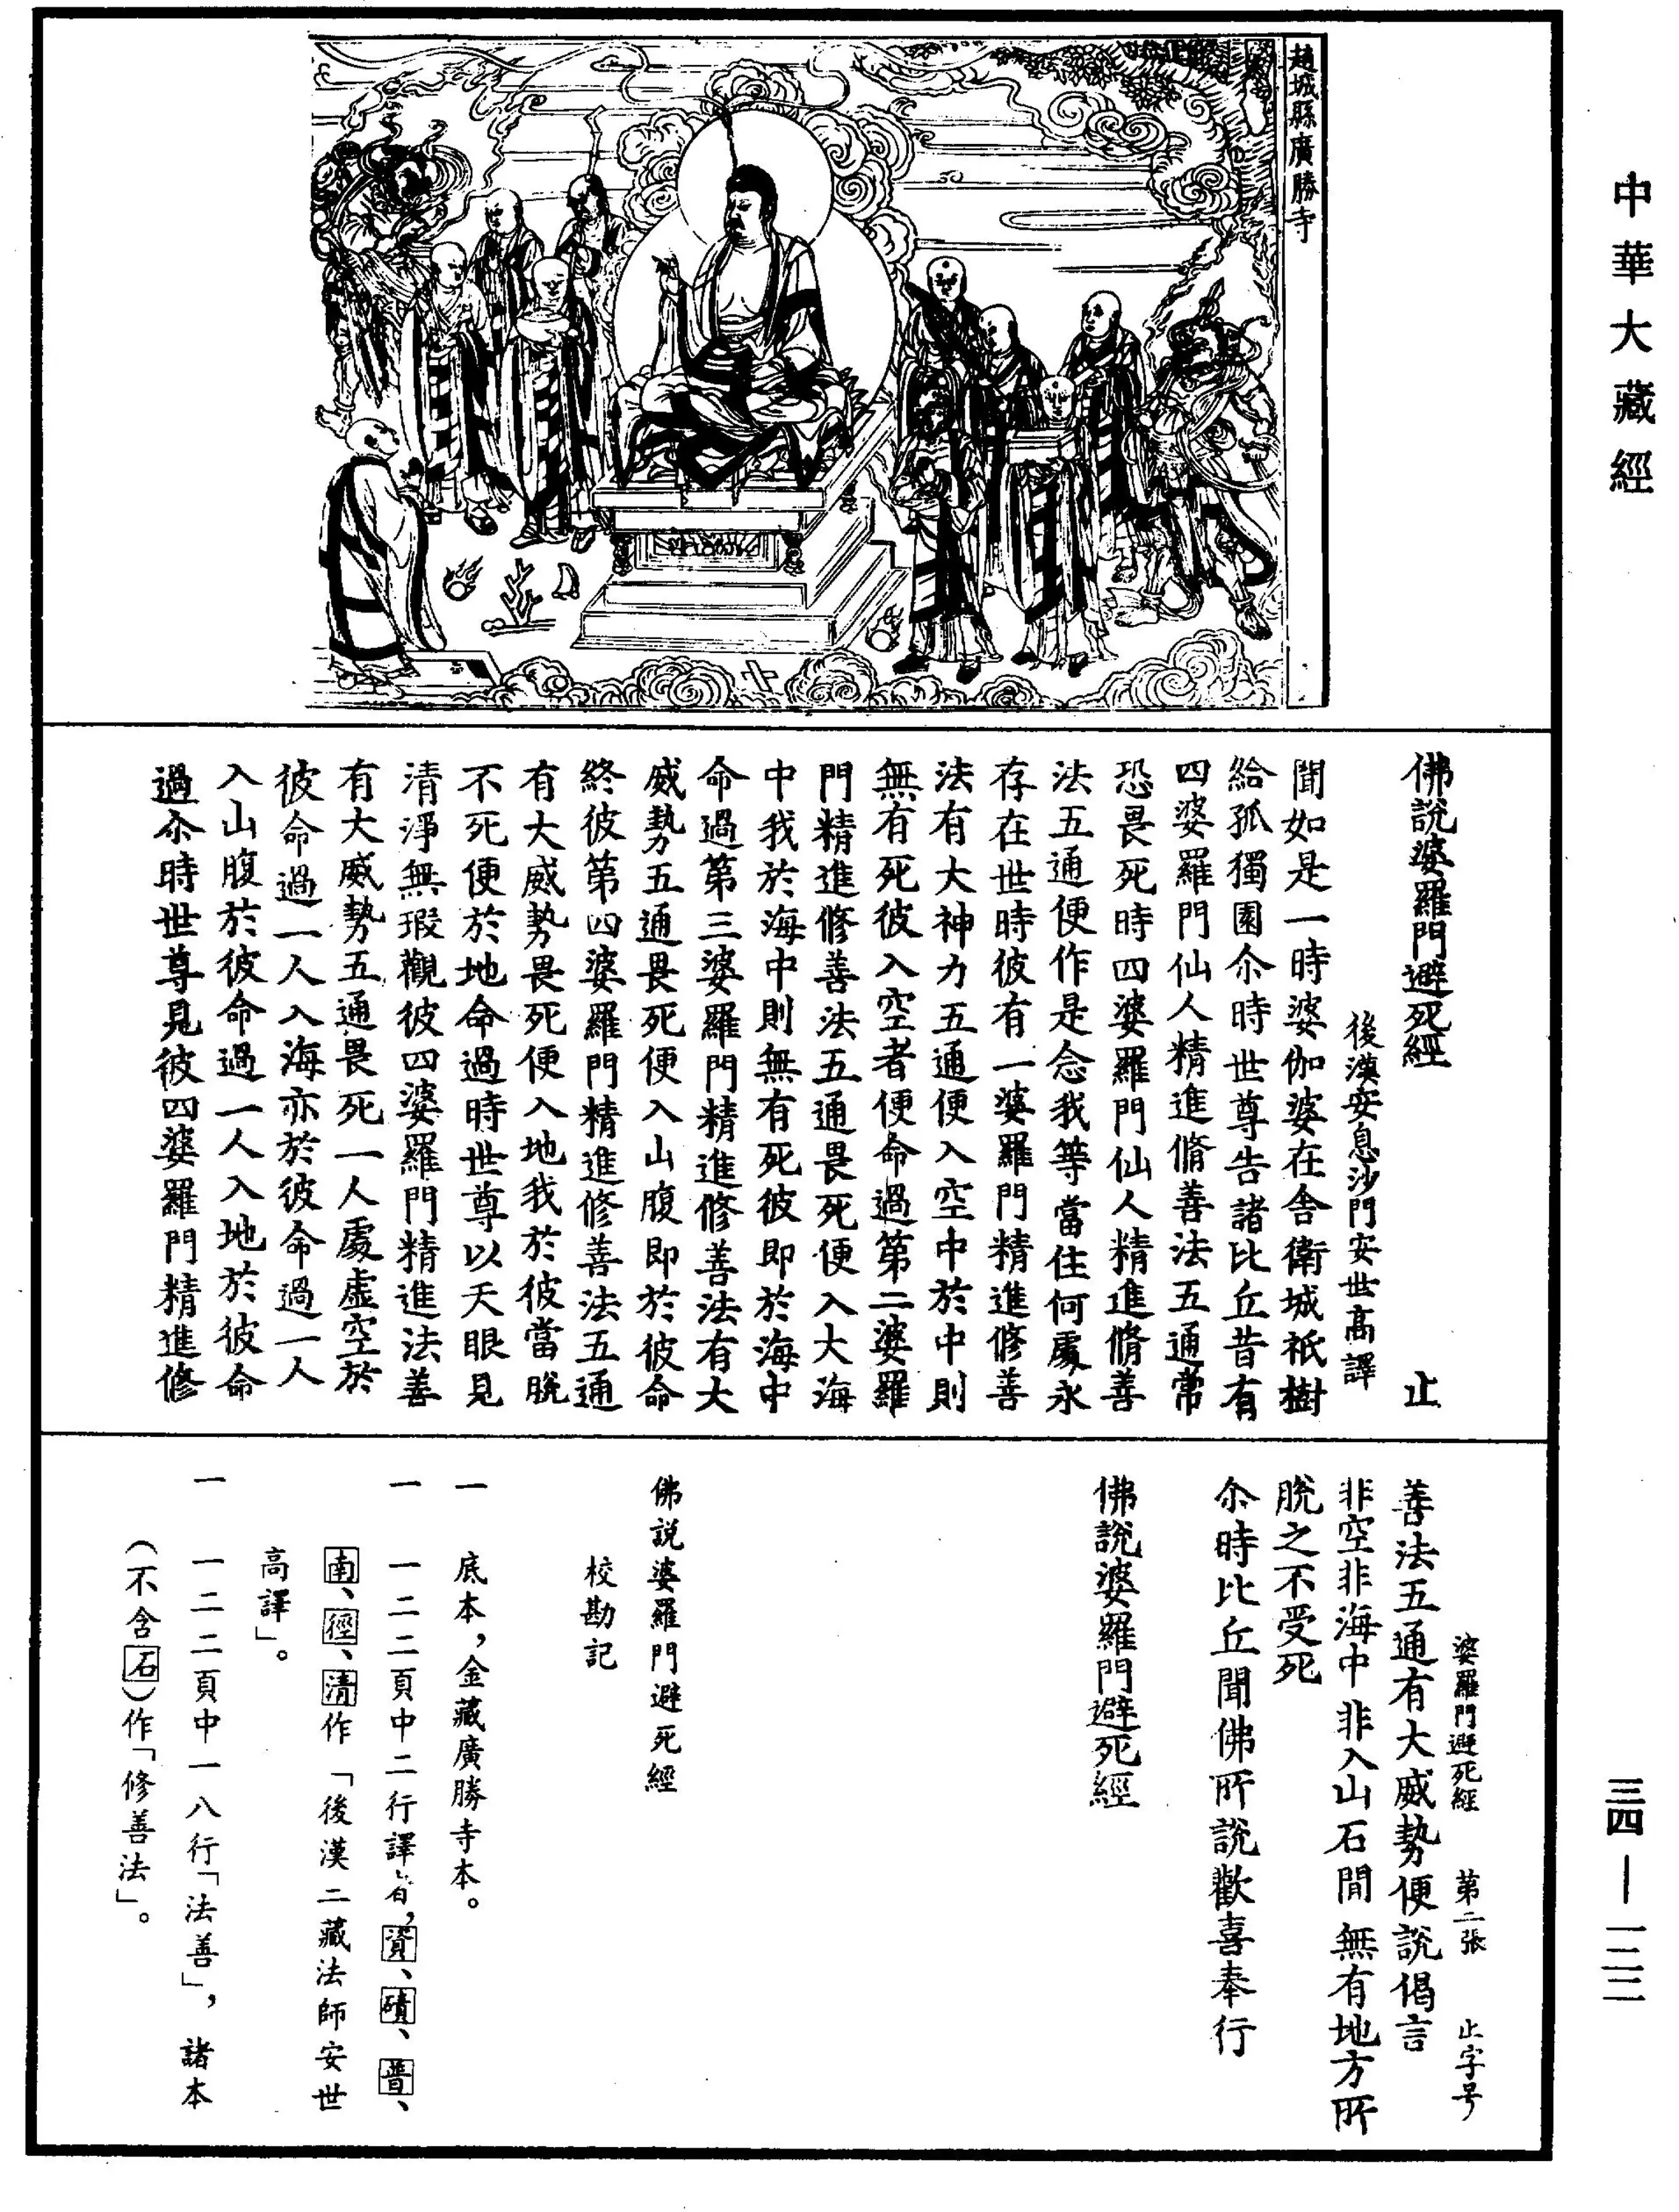 中華大藏經
趙城縣廣勝寺
佛說婆羅門避死經　止
後漢安息沙門安世高譯
聞如是一時婆伽婆在舎衛城祇樹
給孤獨園尒時世尊告諸比丘昔有
四婆羅門仙人精進脩善法五通常
恐畏死時四婆羅門仙人精進脩善
法五通便作是念我等當住何處永
存在世時彼有一婆羅門精進修善
法有大神力五通便入空中於中則
無有死彼入空者便命過第二婆羅
門精進修善法五通畏死便入大海
中我於海中則無有死彼即於海中
命過第三婆羅門精進修善法有大
威勢五通畏死便入山腹即於彼命
終彼第四婆羅門精進修善法五通
有大威勢畏死便入地我於彼當脫
不死便於地命過時世尊以天眼見
清淨無瑕觀彼四婆羅門精進法善
有大威勢五通畏死一人處虛空於
彼命過一人入海亦於彼命過一人
入山腹於彼命過一人入地於彼命
過尒時世尊見彼四婆羅門精進修
婆羅門避死經　第二張　止字号
善法五通有大威勢便說偈言
非空非海中　非入山石間　無有地方所
脫之不受死
尒時比丘聞佛所說歡喜奉行
佛說婆羅門避死經
佛説婆羅門避死經
校勘記
一　底本，金藏廣勝寺本。
一　一二二頁中二行譯者，資、磧、普、
南、徑、清作「後漢三藏法師安世
高譯」。
一　一二二頁中一八行「法善」，諸本
（不含石）作「修善法」。
三四—一二二